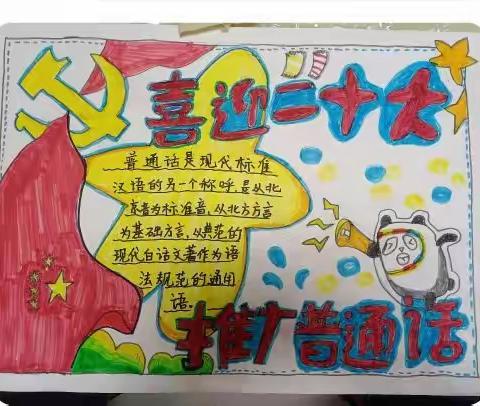 喜迎二十大
普通话是现代标准
汉语的另一个称呼是从北
京音为标准音，从北方方言
为基础方言，从典范的
现代白话文著作为语
法规范的通用
语。
推广普通话